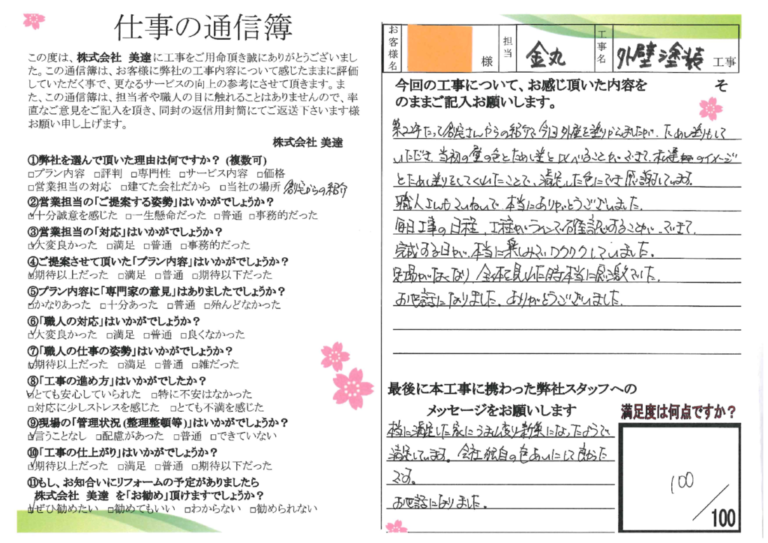 仕事の通信簿
この度は、株式会社 美達に工事をご用命頂き誠にありがとうございまし
た。この通信簿は、お客様に弊社の工事内容について感じたままに評価
していただく事で、更なるサービスの向上の参考にさせて頂きます。ま
た、この通信簿は、担当者や職人の目に触れることはありませんので、率
直なご意見をご記入を頂き、同封の返信用封筒にてご返送下さいます様
お願い申し上げます。
株式会社 美達
①弊社を選んで頂いた理由は何ですか？（複数可）
□プラン内容 □評判 □専門性 □サービス内容 □価格
□営業担当の対応 □建てた会社だから □当社の場所 からの紹介
②営業担当の「ご提案する姿勢」はいかがでしょうか？
☑十分誠意を感じた □一生懸命だった □普通 □事務的だった
③営業担当の「対応」はいかがでしょうか？
☑大変良かった □満足 □普通 □事務的だった
④ご提案させて頂いた「プラン内容」はいかがでしょうか？
☑期待以上だった □満足 □普通 □期待以下だった
⑤プラン内容に「専門家の意見」はありましたでしょうか？
☑かなりあった □十分あった □普通 □殆んどなかった
⑥「職人の対応」はいかがでしょうか？
☑大変良かった □満足 □普通 □良くなかった
⑦「職人の仕事の姿勢」はいかがでしょうか？
☑期待以上だった □満足 □普通 □雑だった
⑧「工事の進め方」はいかがでしたか？
☑とても安心していられた □特に不安はなかった
□対応に少しストレスを感じた □とても不満を感じた
⑨現場の「管理状況(整理整頓等)」はいかがでしょうか？
☑言うことなし □配慮があった □普通 □できていない
⑩「工事の仕上がり」はいかがでしょうか？
☑期待以上だった □満足 □普通 □期待以下だった
⑪もし、お知合いにリフォームの予定がありましたら
株式会社 美達 を「お勧め」頂けますでしょうか？
☑ぜひ勧めたい □勧めてもいい □わからない □勧められない
お客様名 様 担当 金丸 工事名 外壁塗装 工事
今回の工事について、お感じ頂いた内容を そ
のままご記入お願いします。
さんからの紹介で今回外壁を塗りかえましたが、ためし塗りもして
いただき、当初の壁の色とためし塗りと比べることができて、
とためし塗りをしてくれたことで、満足した色にでき感謝しています。
職人さんもていねいで本当にありがとうございました。
毎日工事の日程、工程が 確認することができて、
完成する日が本当に楽しみでワクワクしていました。
足場がなくなり、全体を見れた時本当に感激でした。
お世話になりました。ありがとうございました。
最後に本工事に携わった弊社スタッフへの
メッセージをお願いします
満足度は何点ですか？
本当に満足した家にうまれ変わり新築になったようで
満足しています。会社独自の色あいにして良かった
です。
お世話になりました。
100
／100